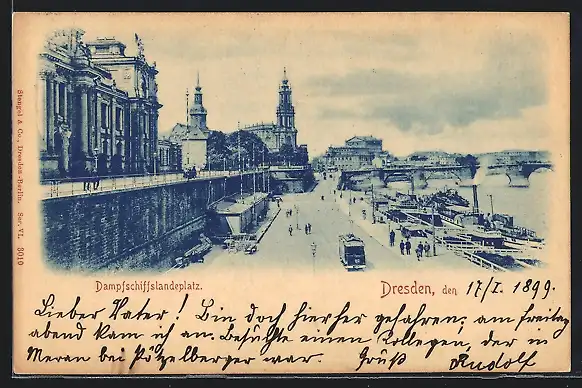 Stengel & Co., Dresden-Berlin. Ser. VI. 3019
Dampfschiffslandeplatz.
Dresden, den 17/I. 1899.
Lieber Vater! Bin doch hierher gefahren; am Freitag
abend kam ich an. Besuchte einen Kollegen, der in
Meran bei Pötzelberger war. Gruß Rudolf